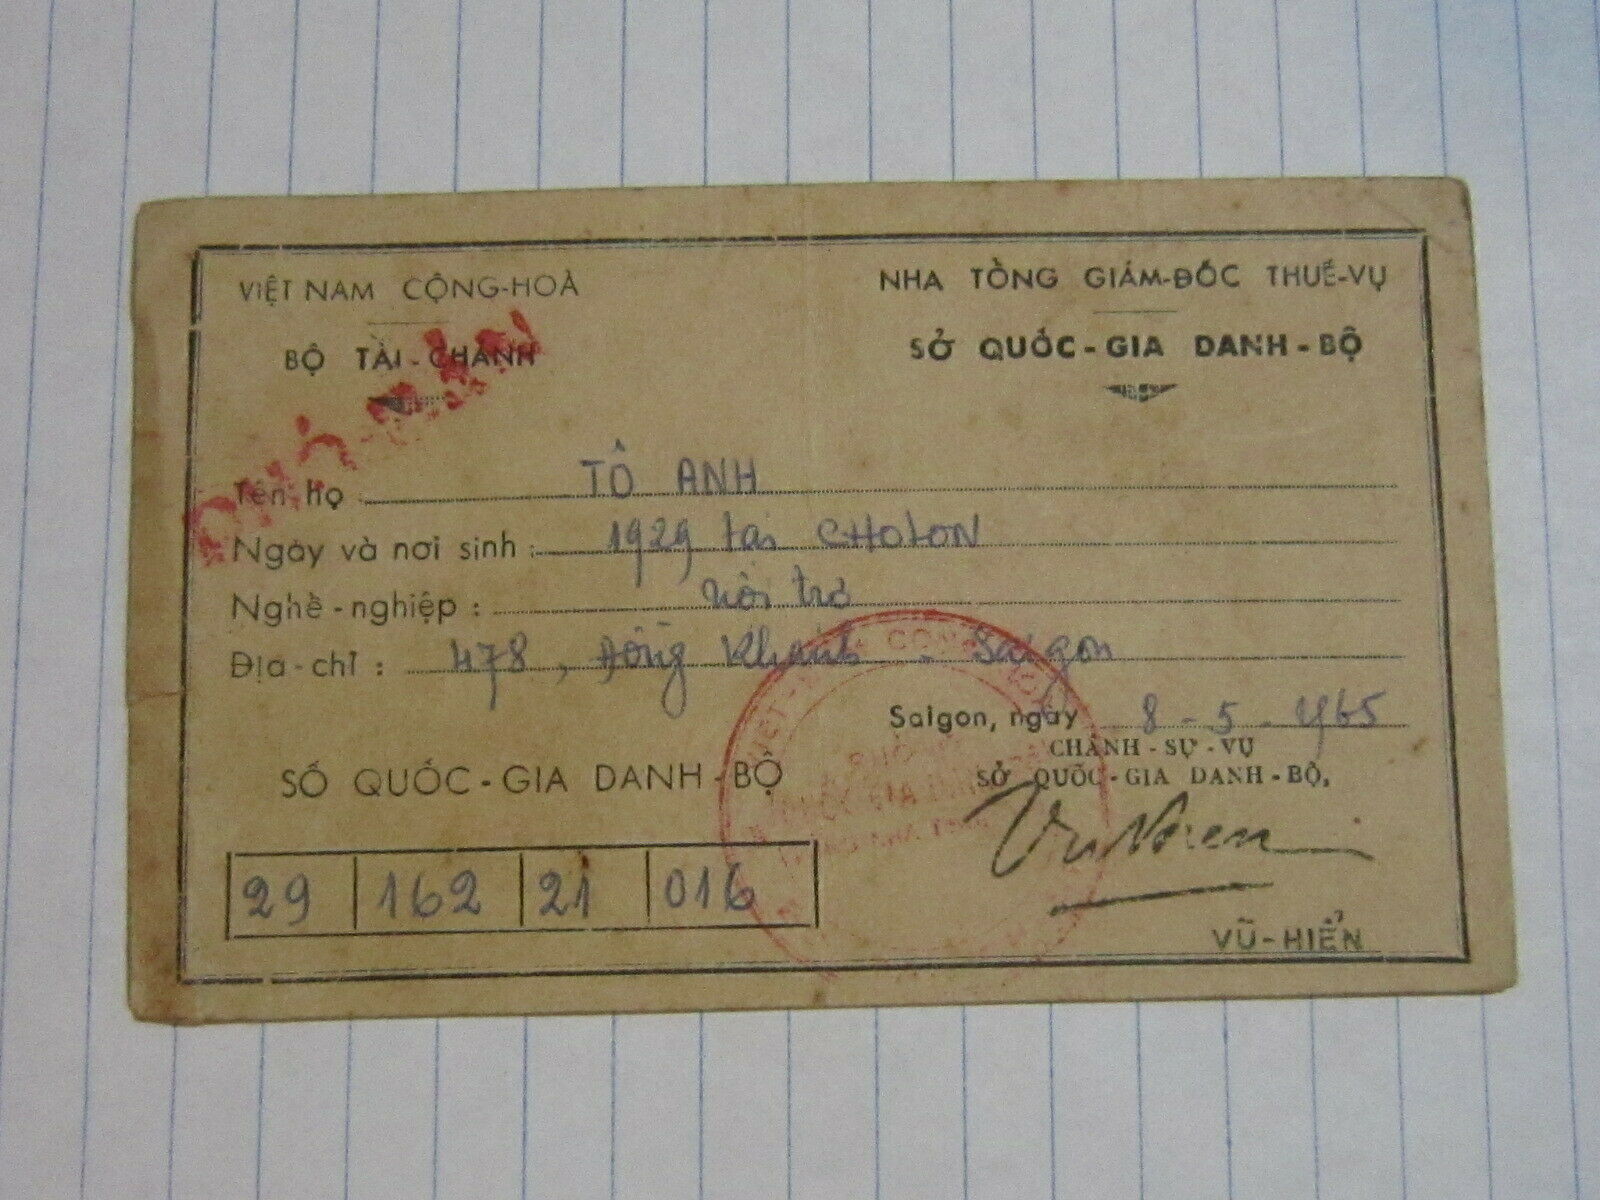 VIỆT NAM CỘNG-HOÀ
BỘ TÀI-CHÁNH
NHA TỔNG GIÁM-ĐỐC THUẾ-VỤ
SỞ QUỐC-GIA DANH-BỘ
Tên họ TÔ ANH
Ngày và nơi sinh : 1929 tại CHOLON
Nghề-nghiệp : Nội trợ
Địa-chỉ : 478, Đồng Khánh - Saigon
Saigon, ngày 8-5-1965
CHÁNH-SỰ-VỤ
SỞ QUỐC-GIA DANH-BỘ,
SỐ QUỐC-GIA DANH-BỘ
29 162 21 016
VŨ-HIỂN